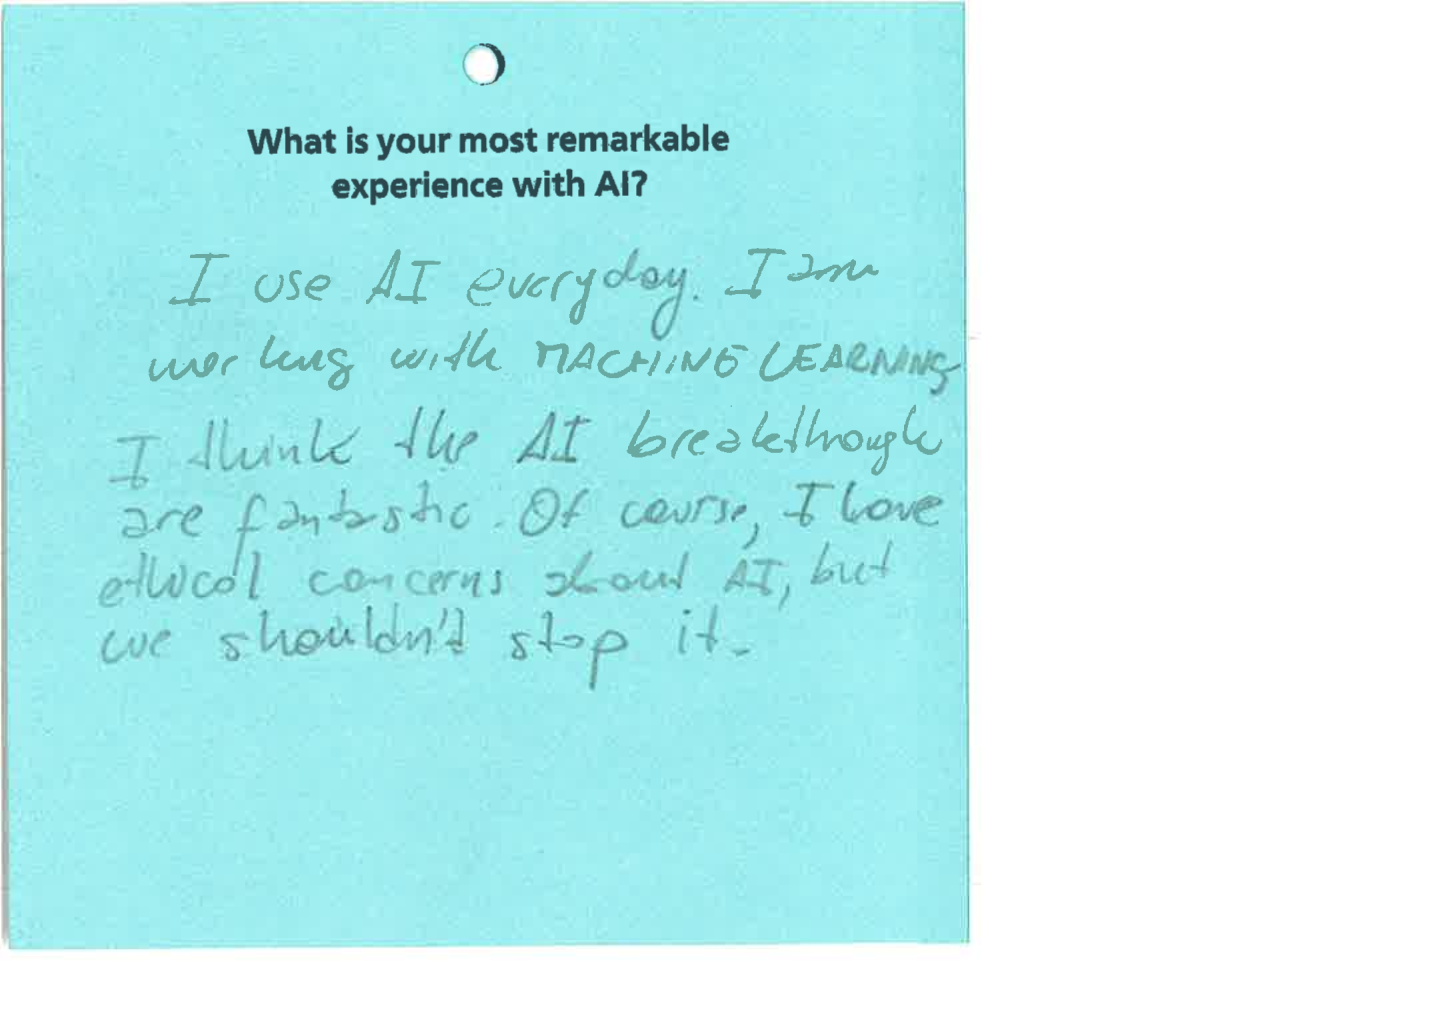 What is your most remarkable
experience with AI?
I use AI everyday. I am
working with MACHINE LEARNING
I think the AI breakthrough
are fantastic. Of course, I have
ethical concerns about AI, but
we shouldn't stop it.